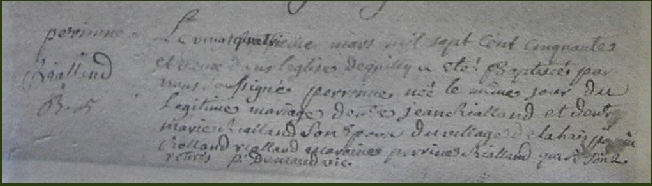 perrinne
Rialland
B. S
Le vingt quatrieme mars mil sept cent cinquante
et deux dans leglise deguilly a eté Baptisée par
nous soussigné perrinne née le même jour du
Legitime mariage dentre jean Rialland et dent
marie Rialland son Epouse du village de la haie
Rolland Rialland maraine perrine Rialland qui
p. vic